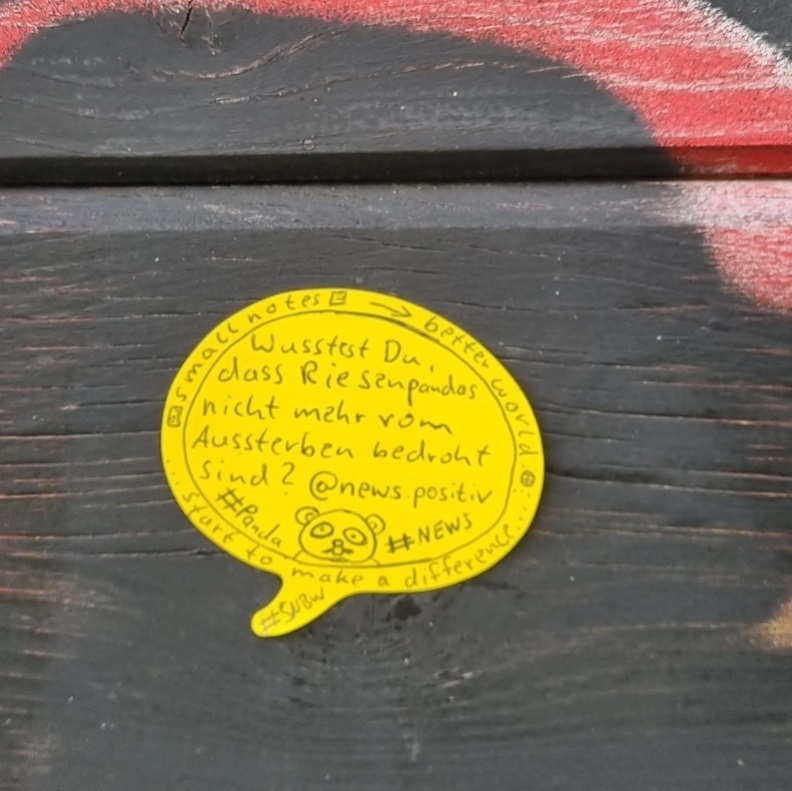 small notes → better world
Wusstest Du,
dass Riesenpandas
nicht mehr vom
Aussterben bedroht
sind? @news.positiv
#Panda
#NEWS
...start to make a difference...
#SNBW